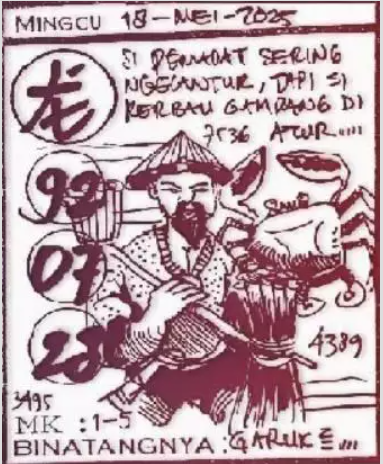 MINGCU 18-MEI-2025
SI PEMADAT SERING
NGELANTUR, TAPI SI
KERBAU GAMPANG DI
7536 ATUR....
龙
92
07
28
4389
3495
MK : 1-5
BINATANGNYA :